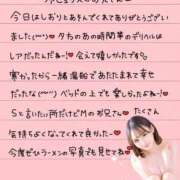 今日はしおりとあそんでくれてありがとうござい
ました(^^) 夕方のあの時間帯のデリヘルは
レアだったんだね〜！会えて嬉しかったです
寒かったから一緒湯船であたたまれて幸せ
だったな(^^) ベッドの上でも愛しかったよ〜
Sと言いた所だけどMのお兄さん たくさん
気持ちよくなってくれて良かった〜
今度ぜひラーメンの写真でも見せてね